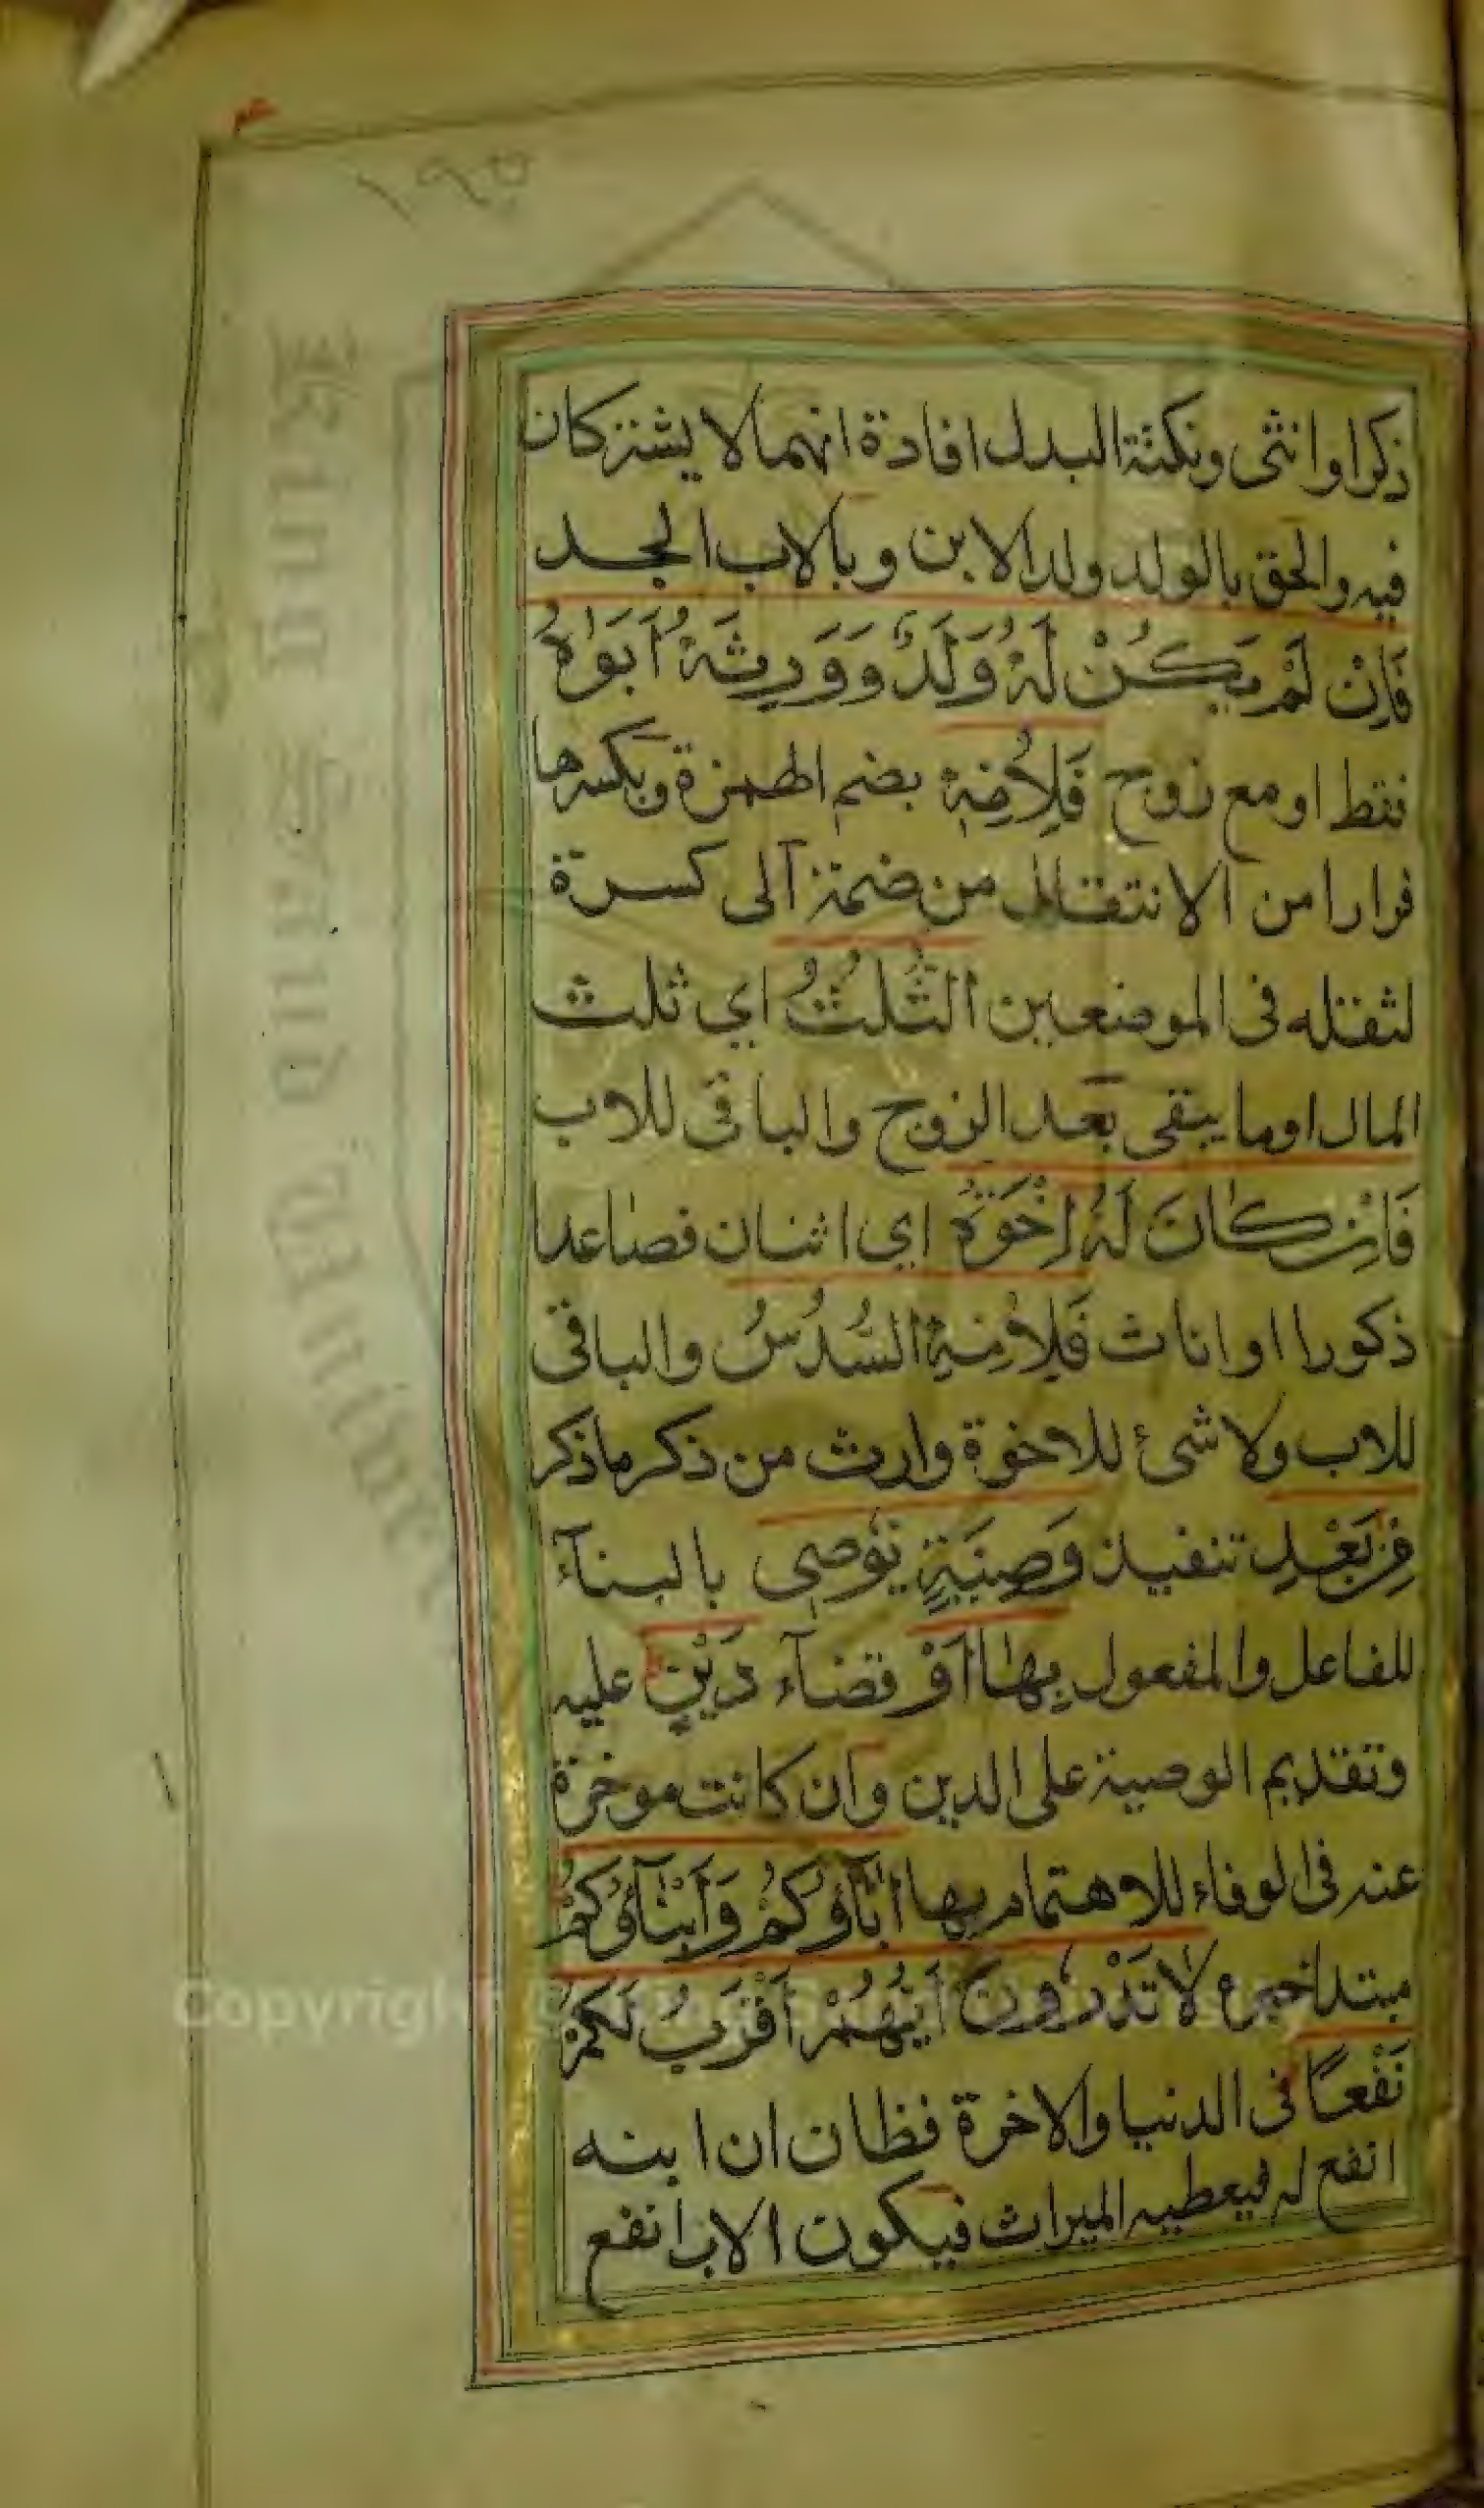 ذكرا وانثى ونكتة البدل افادة انهما لا يشتركان
فيه والحق بالولد ولد الابن وبالاب الجد
فَاِنْ لَمْ يَكُنْ لَهُ وَلَدٌ وَوَرِثَهُ اَبَوَاهُ
فقط او مع زوج فَلِاُمِّهِ بضم الهمزة وبكسرها
فرارا من الانتقال من ضمة الى كسرة
لثقله فى الموضعين الثُّلُثُ اي ثلث
المال او ما يبقى بعد الزوج والباقى للاب
فَاِنْ كَانَ لَهُ اِخْوَةٌ اي اثنان فصاعدا
ذكورا او اناث فَلِاُمِّهِ السُّدُسُ والباقى
للاب ولا شئ للاخوة وارث من ذكر ما ذكر
مِنْ بَعْدِ تنفيذ وَصِيَّةٍ يُوصِى بالبنآء
للفاعل والمفعول بِهَا اَوْ قضآء دَيْنٍ عليه
وتقديم الوصية على الدين وان كانت موخرة
عنه فى الوفاء للاهتمام بها اٰبَآؤُكُمْ وَاَبْنَآؤُكُمْ
مبتدا خبره لَا تَدْرُونَ اَيُّهُمْ اَقْرَبُ لَكُمْ
نَفْعًا فى الدنيا والاخرة فظان ان ابنه
انفع له فيعطيه الميراث فيكون الاب انفع
Copyright